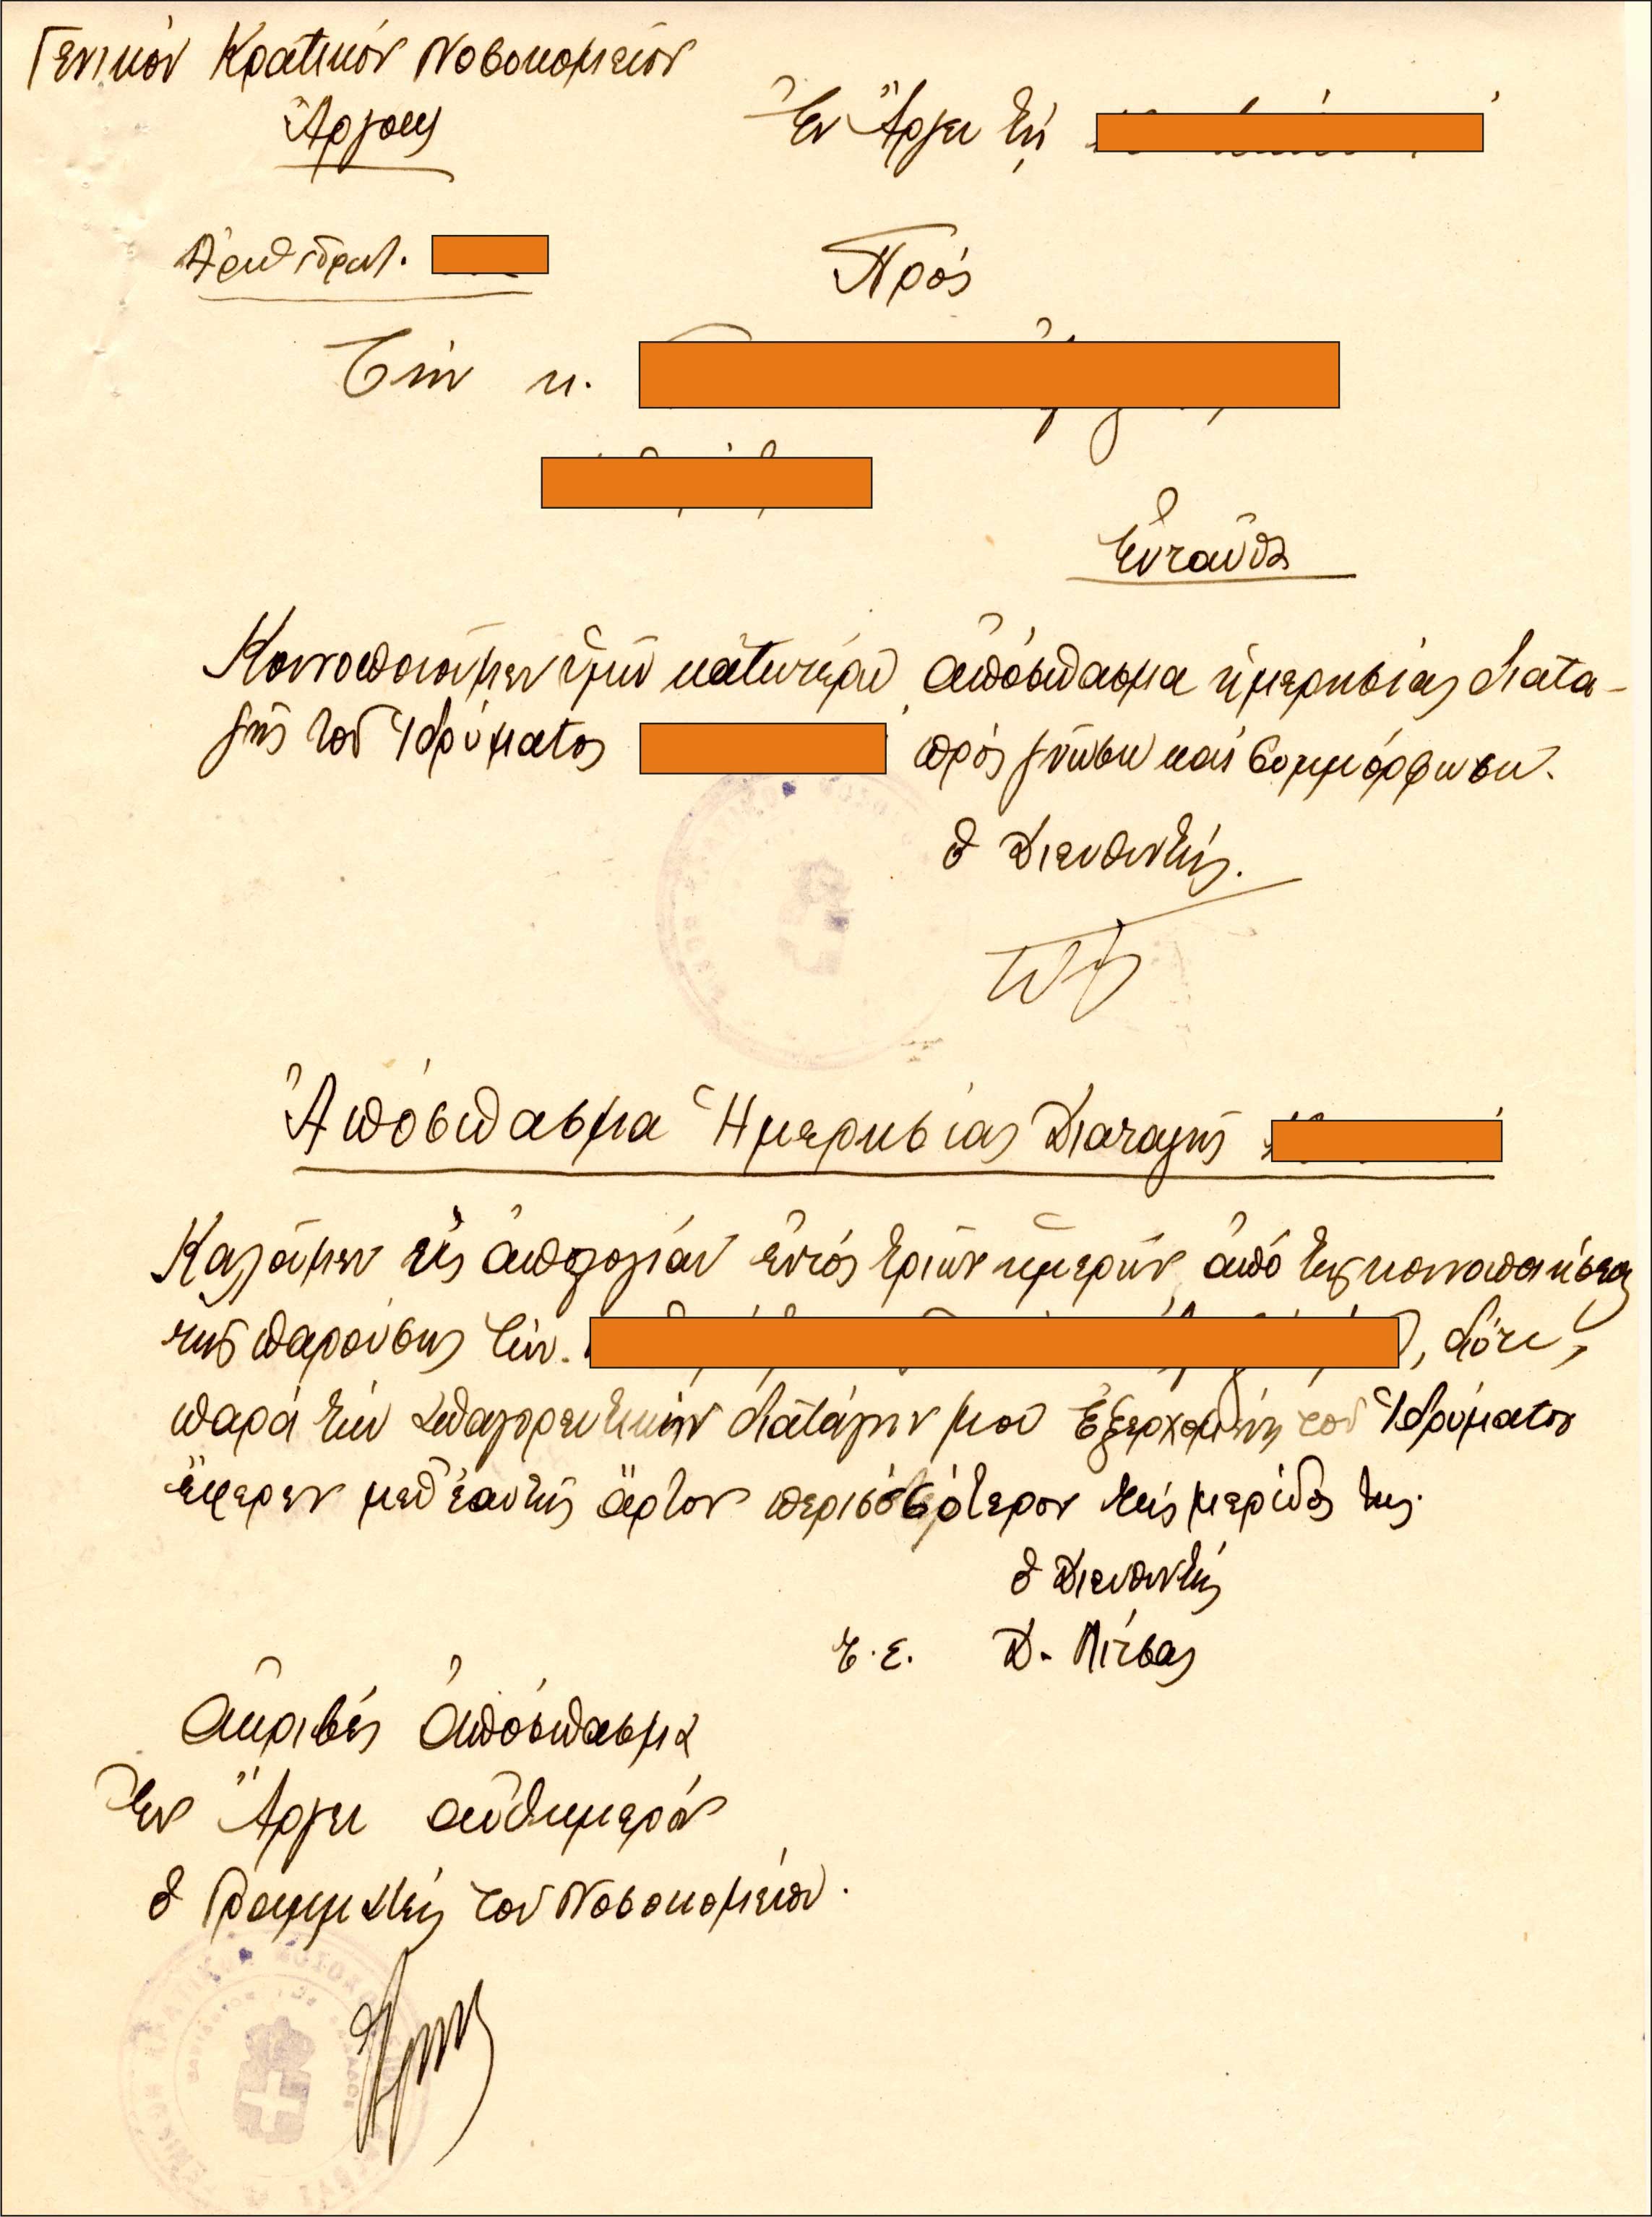 Γενικόν Κρατικόν Νοσοκομείον
Ἄργους
Ἐν Ἄργει τῇ
Ἀριθ πρωτ.
Πρός
Τήν κ.
Ἐνταῦθα
Κοινοποιοῦμεν ὑμῖν κατωτέρω ἀπόσπασμα ἡμερησίας διατα-
γῆς τοῦ Ἱδρύματος πρός γνῶσιν καί συμμόρφωσιν.
ὁ Διευθυντής.
Ἀπόσπασμα Ἡμερησίας Διαταγῆς
Καλοῦμεν εἰς ἀπολογίαν ἐντός τριῶν ἡμερῶν ἀπό τῆς κοινοποιήσεως
τῆς παρούσης τήν. , διότι,
παρά τήν ἀπαγορευτικήν διατάγην μου ἐξερχομένη τοῦ Ἱδρύματος
ἔφερεν μεθ' ἑαυτῆς ἄρτον περισσότερον τῆς μερίδος της.
ὁ Διευθυντής
Τ.Σ. Δ. Πίτσας
Ἀκριβές ἀπόσπασμα
Ἐν Ἄργει αὐθημερόν
ὁ Γραμματεύς τοῦ Νοσοκομείου.